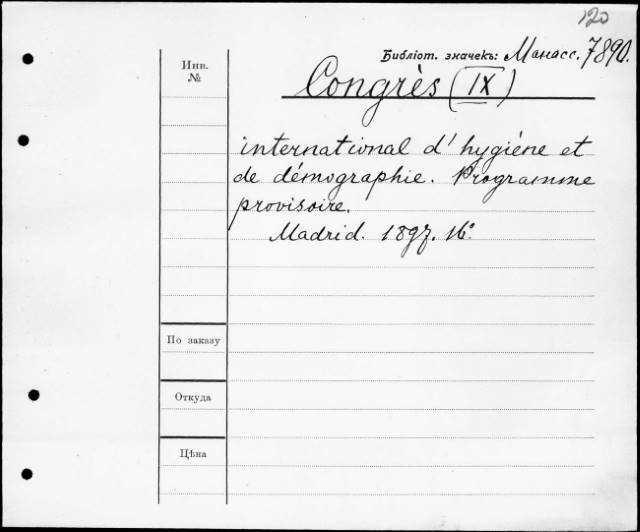 120
Библіот. значекъ: Манасс. 7890.
Инв.
№
Congrès (IX)
international d'hygiène et
de démographie. Programme
provisoire.
Madrid. 1897. 16°.
По заказу
Откуда
Цѣна